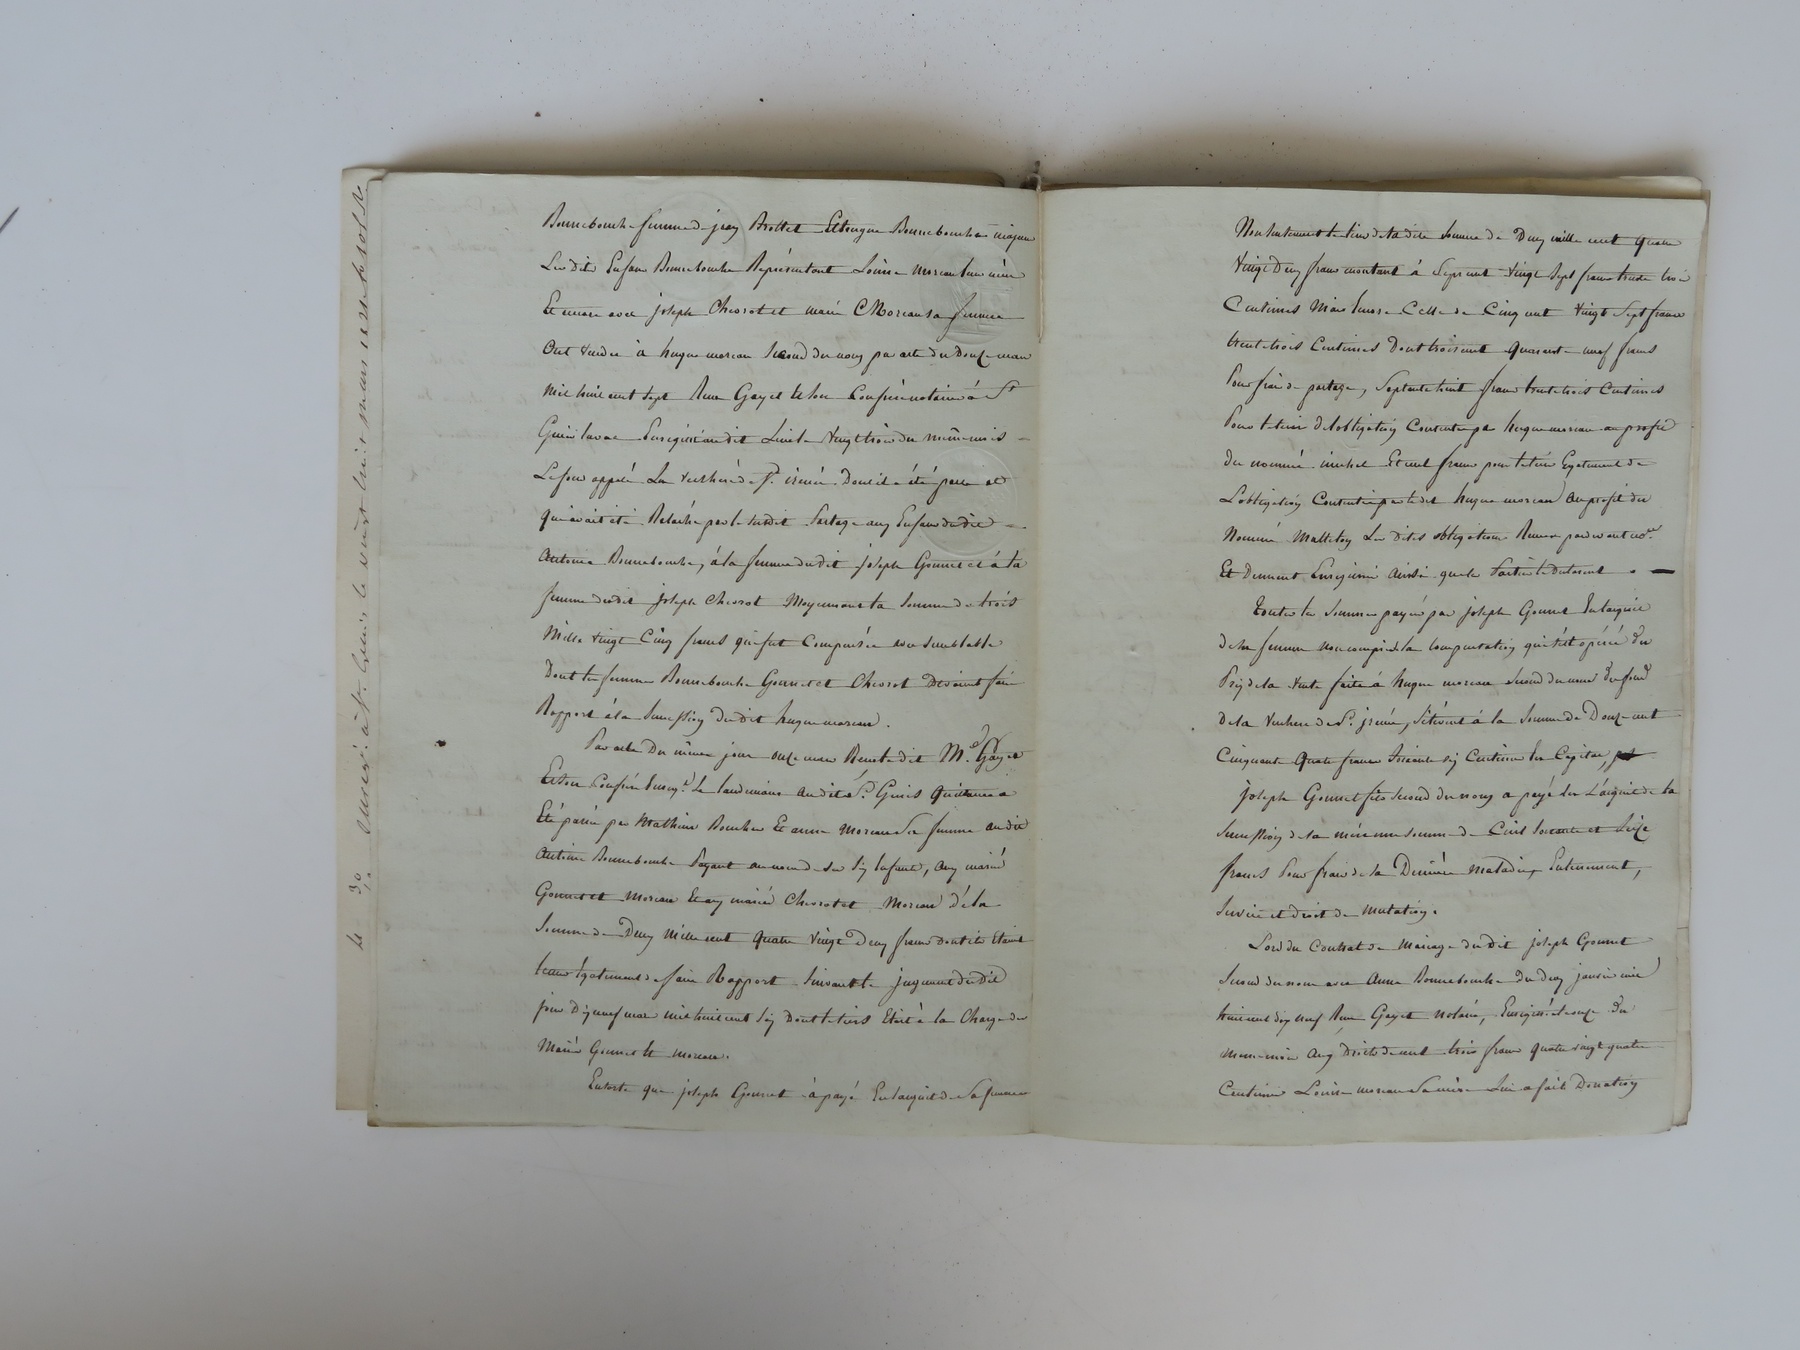 Bonnebouche femme de jean Brottet Et Bonnebouche majeure
Les dits Enfans Bonnebouche Représentant Louise moreau leur mère
Et encore avec joseph Chevrot et marie Moreau sa femme
Ont vendu à hugue moreau second du nom par acte du Onze mars
Mil huit cent sept Reçu Gayet et son Confrère notaire à St
Genis laval Enregistré au dit Lieu le vingt trois du même mois
Le fond appelé La verchère de St irénée Dont il a été parlé et
qui avait été Relaché par le susdit Partage aux Enfans du dit
Antoine Bonnebouche, à la femme du dit joseph Gonnet et à la
femme du dit joseph Chevrot Moyennant la Somme de trois
Mille vingt Cinq francs qui fut Compensée avec semblable
Dont les femmes Bonnebouche Gonnet et Chevrot Devaient faire
Rapport à la Succession du dit hugue moreau.
Par acte Du même jour onze mars Reçu le dit Me Gayet
Et son Confrère Enreg.é Le landemain au dit St Genis Quittance a
Eté passée par Mathieu Boucher Et anne Moreau Sa femme au dit
Antoine Bonnebouche Payant au nom de ses six Enfants, aux mariés
Gonnet et Moreau Et aux mariés Chevrot et Moreau de la
Somme de Deux Mille cent Quatre vingt Deux francs dont ils Etaient
tenus également de faire Rapport Suivant le jugement du dit
jour Dix neuf mars mil huit cent Six Dont le tiers Etait à la Charge des
Mariés Gonnet et moreau.
Ensorte que joseph Gonnet à payé En l'acquit de Sa femme
Non Seulement le tiers de la dite Somme de Deux mille cent quatre
vingt Deux francs montant à Sept cent vingt Sept francs trente trois
Centimes Mais Encore Celle de Cinq cent vingt Sept francs
trente trois Centimes Dont trois cent Quarante neuf francs
Pour frais de partage, Septante huit francs trente trois Centimes
Pour le tiers d'obligation Consentie par hugue moreau au profit
du nommé michel Et cent francs pour le tiers Egalement de
L'obligation Consentie par le dit hugue moreau Au profit du
Nommé Les dites obligations Reçues par devant nore
Et Duement Enregistré Ainsi que les Parties le Déclarent .
Toutes les Sommes payées par joseph Gonnet En l'acquit
de sa femme non compris la compensation qui s'est opérée du
Prix de la vente faite à hugue moreau Second du nom du fond
de la verchère de St irénée, s'élèvent à la Somme de Douze cent
Cinquante Quatre francs Soixante six Centimes En Capitaux,
joseph Gonnet fils Second du nom a payé En L'acquit de la
Succession de la mère une somme de Cent Soixante et Seize
francs Pour frais de sa Dernière maladie, Enterrement,
Service et droit de Mutation.
Lors du Contrat de Mariage du dit joseph Gonnet
Second du nom avec Anne Bonnebouche Du Deux janvier mil
huit cent dix neuf Reçu Gayet notaire, Enregistré le onze du
même mois Aux Droits de cent trois francs quatre vingt quatre
Centimes Louise moreau Sa mère Lui a fait Donation